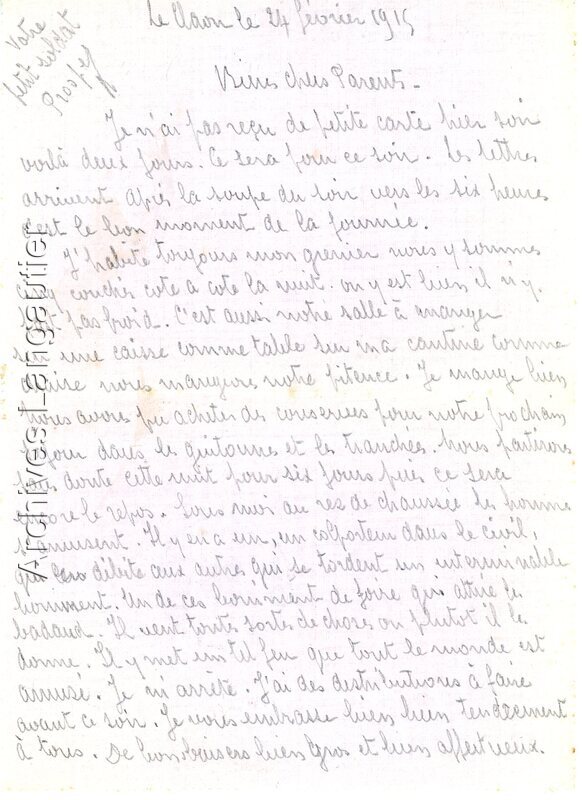 Le Claon le 24 février 1915
Votre
petit soldat
Prosper
Bien chers Parents -
Je n'ai pas reçu de petite carte hier soir
voilà deux jours. Ce sera pour ce soir. Les lettres
arrivent après la soupe du soir vers les six heures
c'est le bon moment de la journée.
J'habite toujours mon grenier nous y sommes
cinq couchés cote a cote la nuit. on y est bien il n'y
fait pas froid. C'est aussi notre salle à manger
sur une caisse comme table sur ma cantine comme
chaise nous mangeons notre pitence. Je mange bien
nous avons pu acheter des conserves pour notre prochain
séjour dans les guitounes et les tranchées. Nous partirons
sans doute cette nuit pour six jours puis ce sera
encore le repos. Sous moi au rez de chaussée les hommes
s'amusent. Il y en a un, un colporteur dans le civil,
qui débite aux autres qui se tordent un interminable
boniment. Un de ces boniment de foire qui attire les
badauds. Il vent toutes sortes de choses ou plutot il les
donne. Il y met un tel feu que tout le monde est
amusé. Je m'arrête. J'ai des distributions à faire
avant ce soir. Je vous embrasse bien bien tendrement
à tous. De bons baisers bien gros et bien affectueux.
Archives Langautier